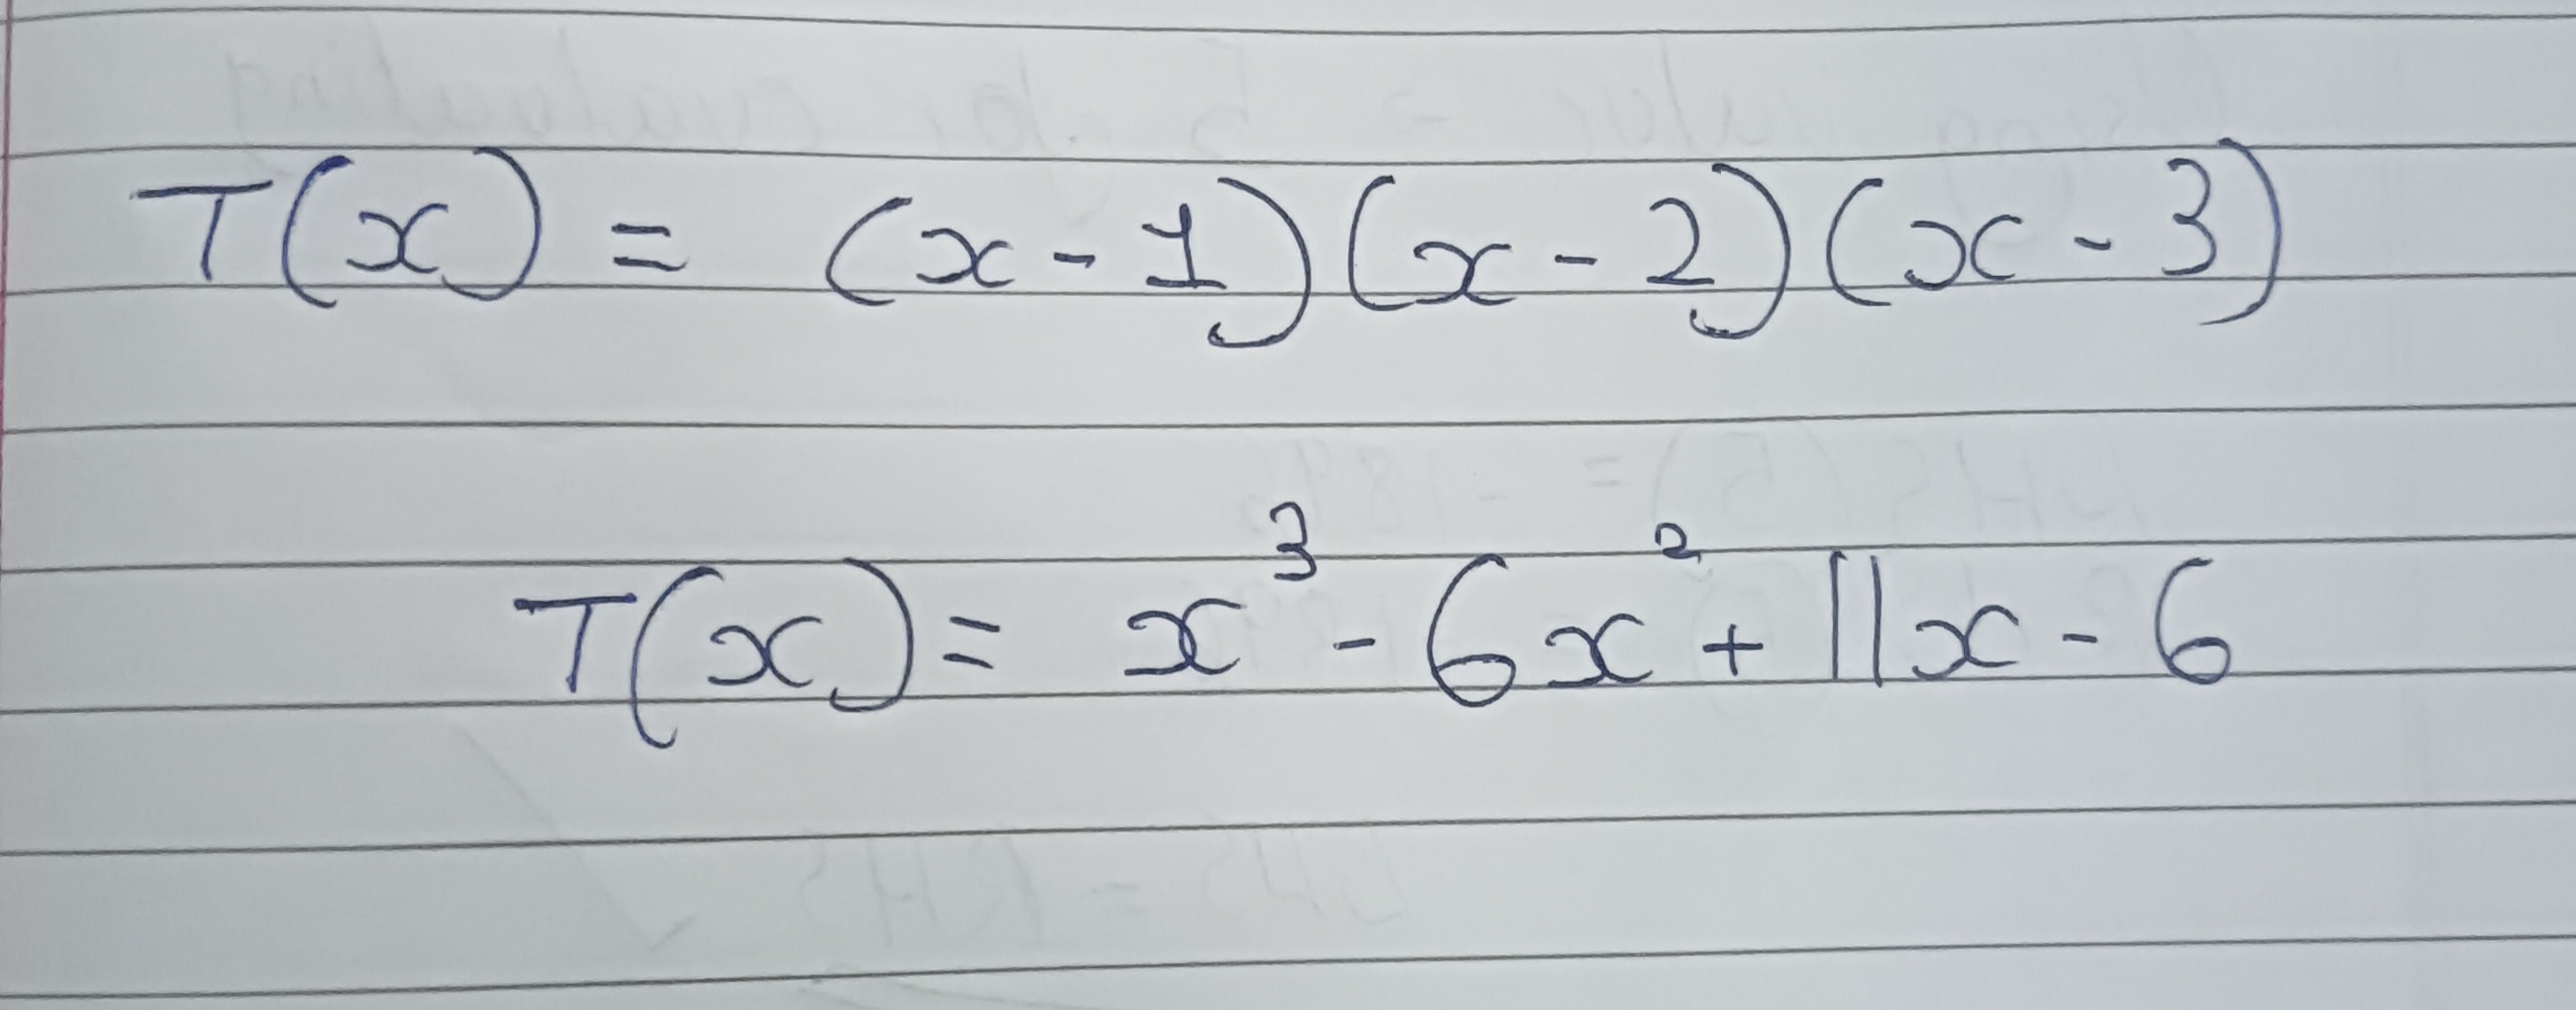 T(x) = (x-1)(x-2)(x-3)
T(x) = x³ - 6x² + 11x - 6